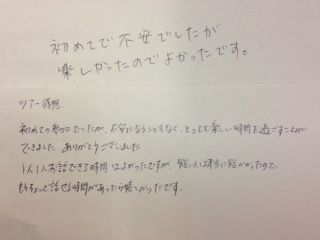 初めてで不安でしたが
楽しかったのでよかったです。
ツアー感想
初めての参加でしたが、不安になることもなく、とっても楽しい時間を過ごすことが
できました。ありがとうございました。
1人1人お話できる時間はよかったですが、短い人は本当に短かったので
もうちょっと話せる時間があったら嬉しかったです。